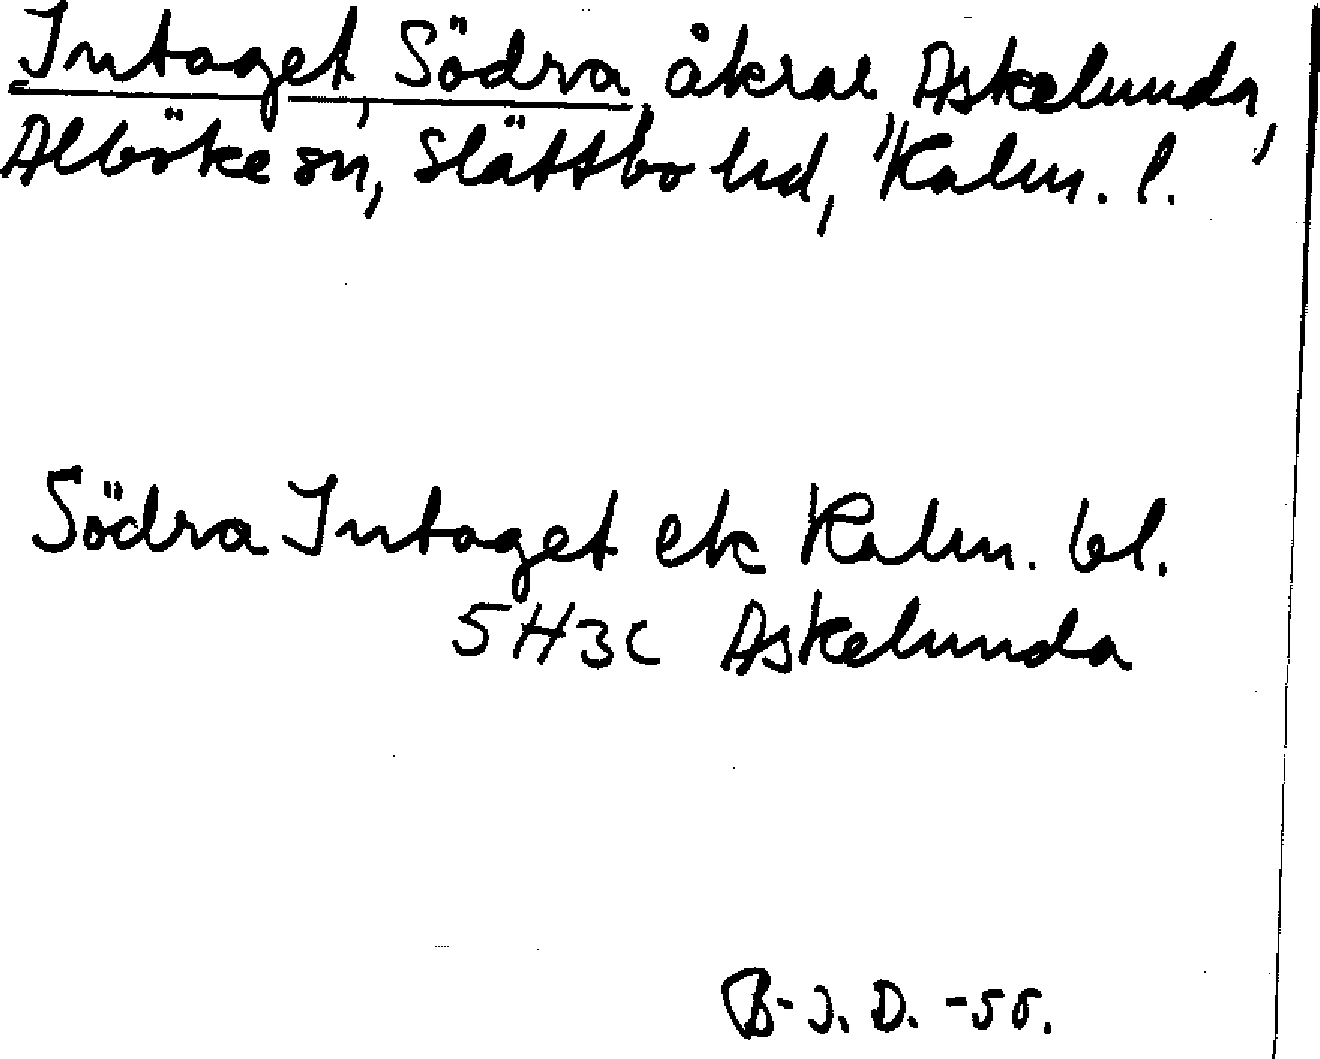 Intaget, Södra, åkrar, Askelunda,
Alböke sn, Slättbo hd, Kalm. l.
Södra Intaget ek Kalm. bl.
5H3c Askelunda
B-J. D. -55.